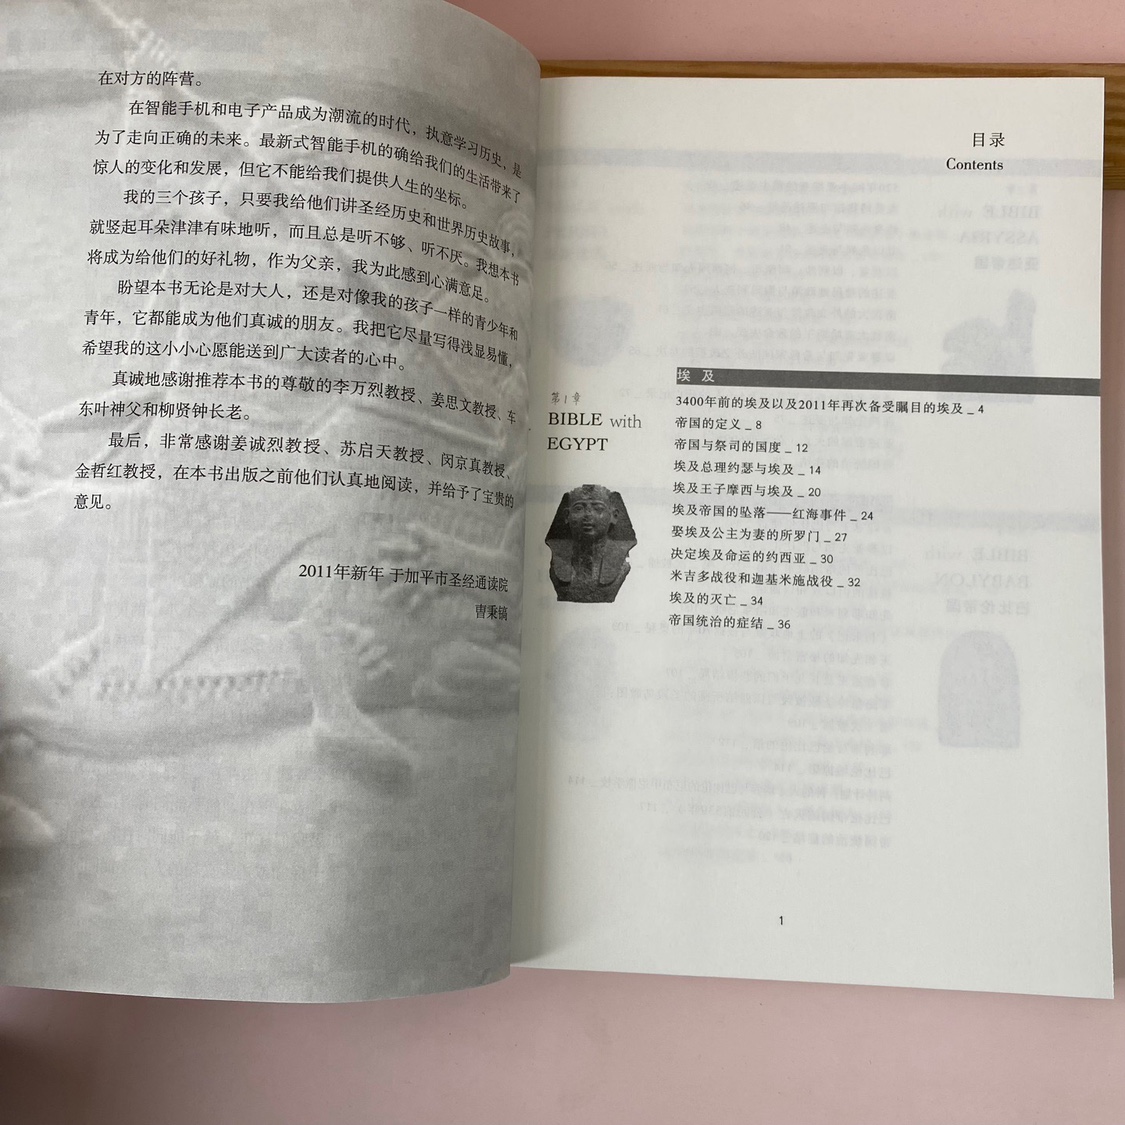 在对方的阵营。
在智能手机和电子产品成为潮流的时代，执意学习历史，是
为了走向正确的未来。最新式智能手机的确给我们的生活带来了
惊人的变化和发展，但它不能给我们提供人生的坐标。
我的三个孩子，只要我给他们讲圣经历史和世界历史故事，
就竖起耳朵津津有味地听，而且总是听不够、听不厌。我想本书
将成为给他们的好礼物，作为父亲，我为此感到心满意足。
盼望本书无论是对大人，还是对像我的孩子一样的青少年和
青年，它都能成为他们真诚的朋友。我把它尽量写得浅显易懂，
希望我的这小小心愿能送到广大读者的心中。
真诚地感谢推荐本书的尊敬的李万烈教授、姜思文教授、车
东叶神父和柳贤钟长老。
最后，非常感谢姜诚烈教授、苏启天教授、闵京真教授、
金哲红教授，在本书出版之前他们认真地阅读，并给予了宝贵的
意见。
2011年新年 于加平市圣经通读院
曺秉镐
目录
Contents
第1章
BIBLE with
EGYPT
埃及
3400年前的埃及以及2011年再次备受瞩目的埃及 _ 4
帝国的定义 _ 8
帝国与祭司的国度 _ 12
埃及总理约瑟与埃及 _ 14
埃及王子摩西与埃及 _ 20
埃及帝国的坠落——红海事件 _ 24
娶埃及公主为妻的所罗门 _ 27
决定埃及命运的约西亚 _ 30
米吉多战役和迦基米施战役 _ 32
埃及的灭亡 _ 34
帝国统治的症结 _ 36
1